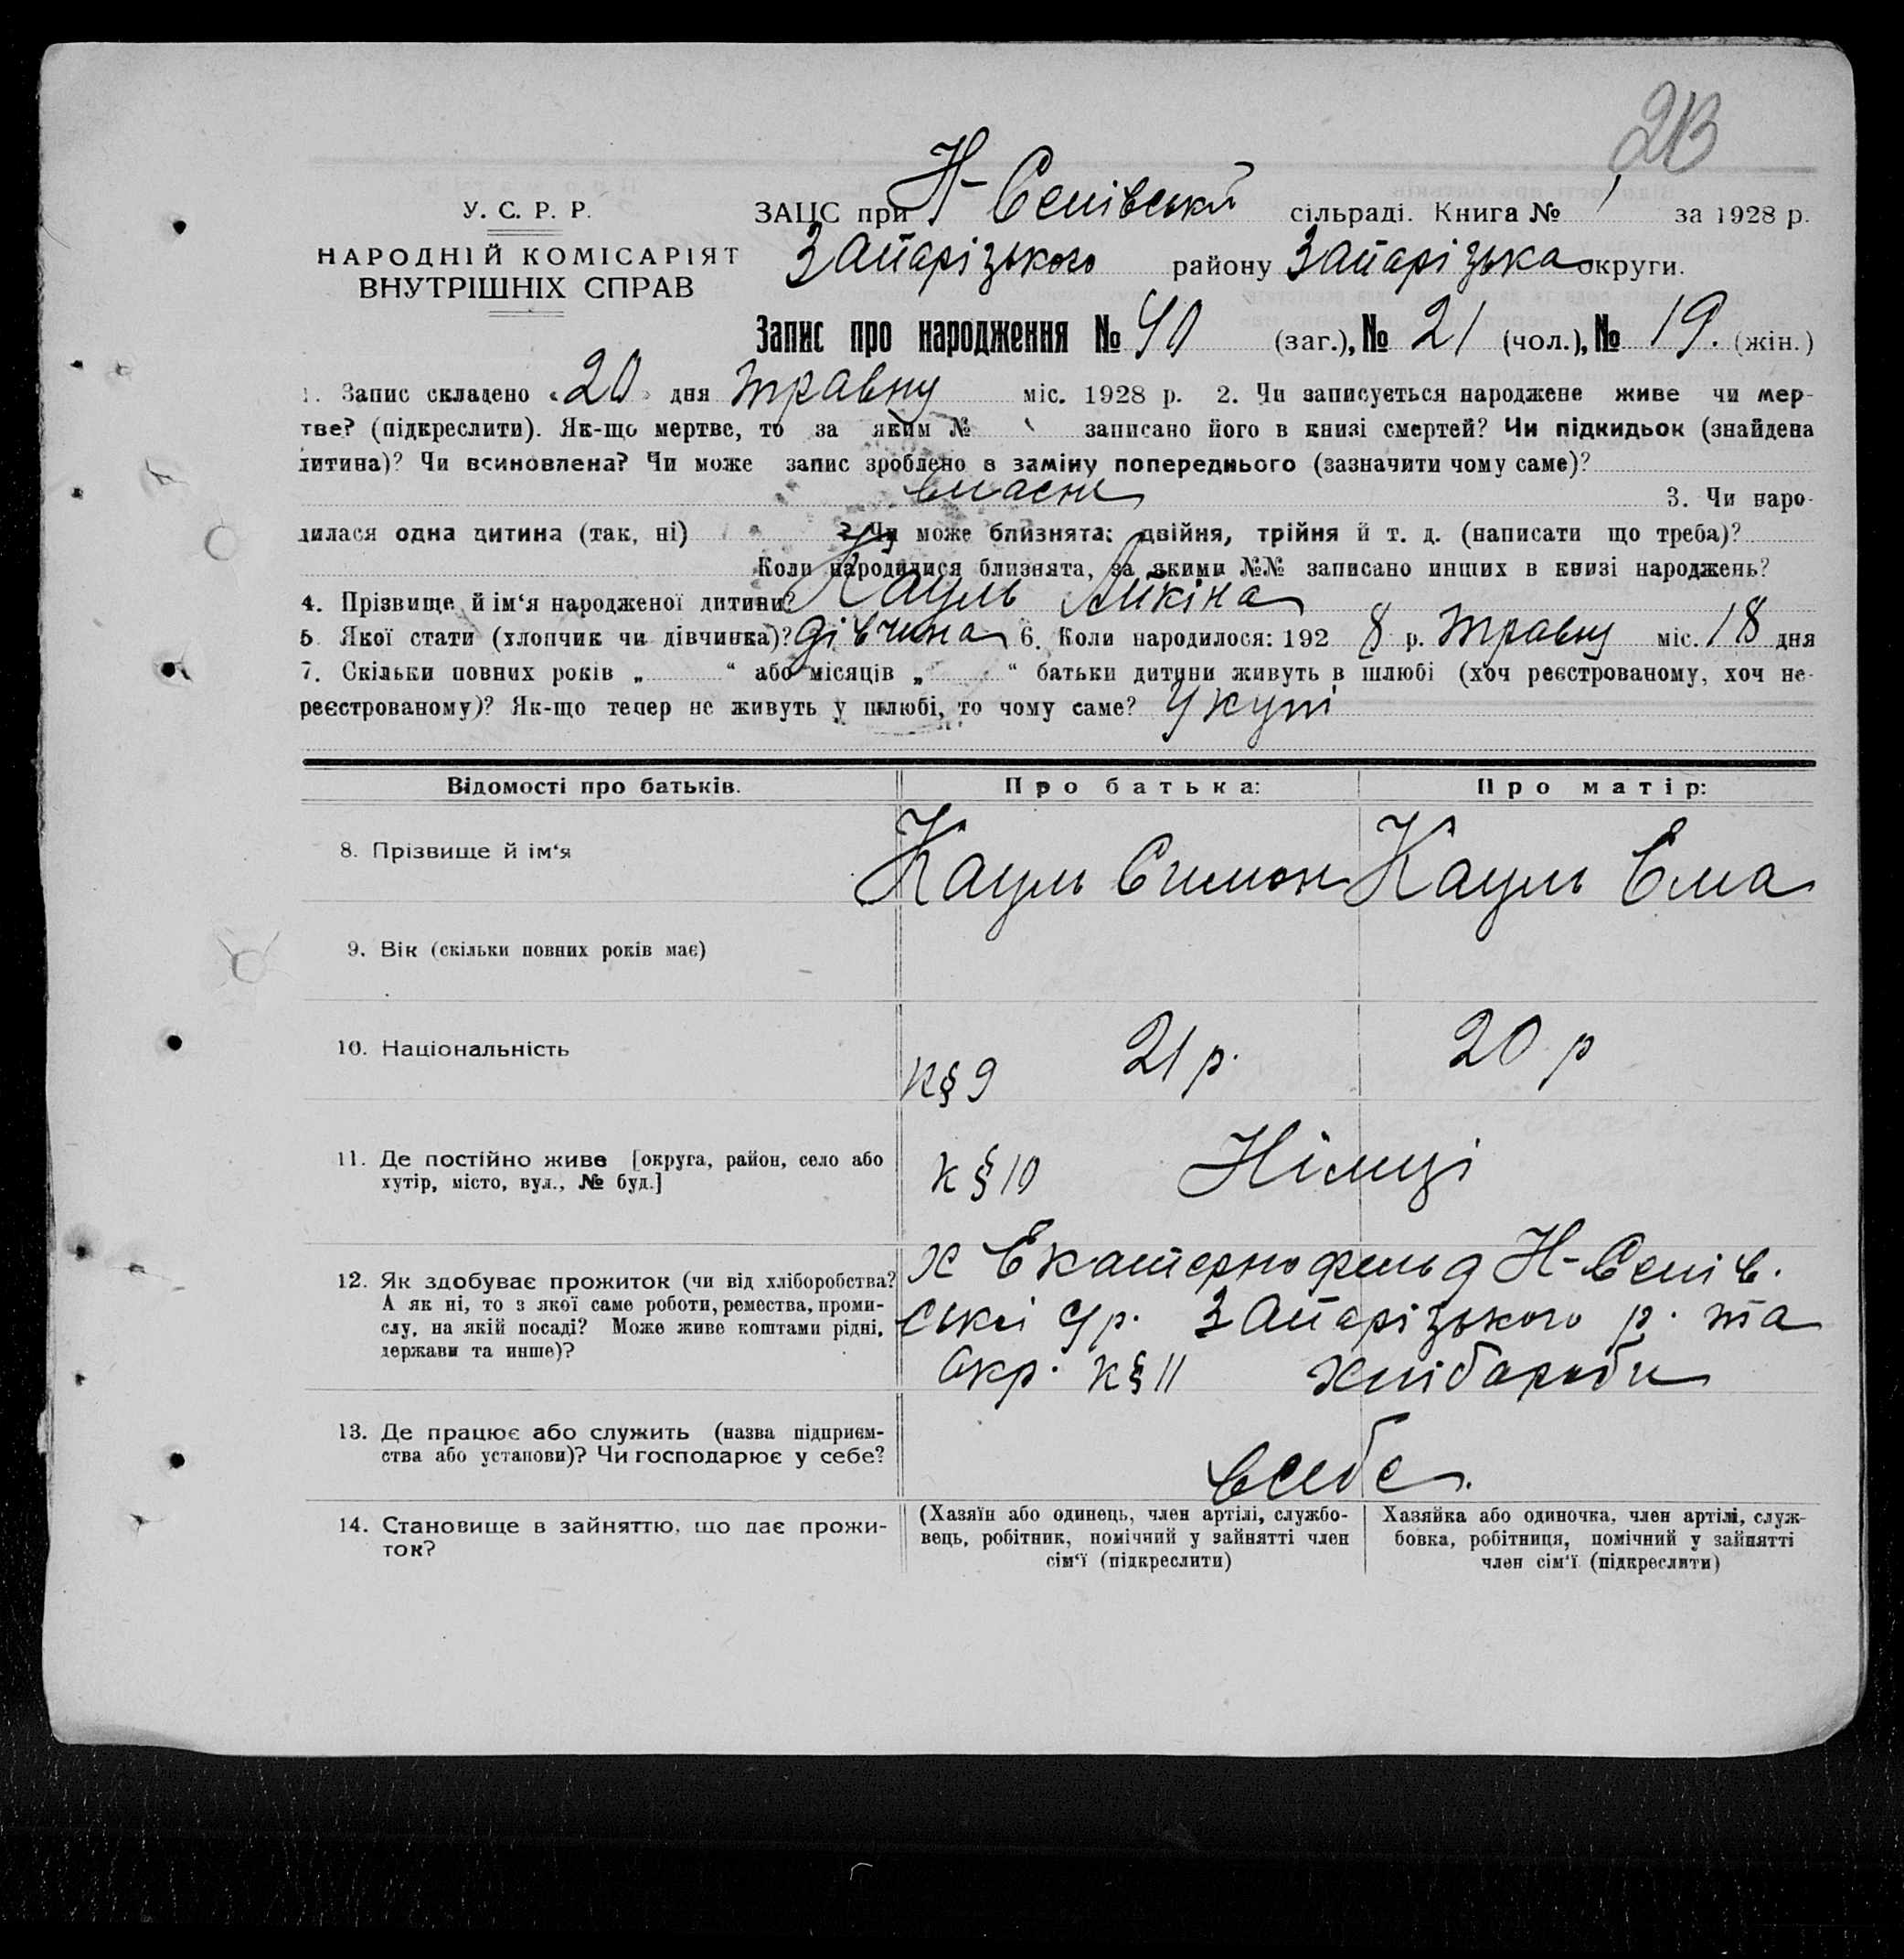 213
У. С. Р. Р.
НАРОДНІЙ КОМІСАРІЯТ
ВНУТРІШНІХ СПРАВ
ЗАЦС при Н-Селівській сільраді. Книга № 1 за 1928 р.
Запарізького району Запарізька округи.
Запис про народження № 40 (заг.), № 21 (чол.), № 19. (жін.)
1. Запис складено «20» дня травну міс. 1928 р. 2. Чи записується народжене живе чи мер-
тве? (підкреслити). Як-що мертве, то за яким № записано його в книзі смертей? Чи підкидьок (знайдена
дитина)? Чи всиновлена? Чи може запис зроблено в заміну попереднього (зазначити чому саме)?
власне
3. Чи наро-
дилася одна дитина (так, ні) ? Чи може близнята: двійня, трійня й т. д. (написати що треба)?
Коли народилися близнята, за якими №№ записано инших в книзі народжень?
4. Прізвище й ім‘я народженої дитини? Кауль
5 Якої стати (хлопчик чи дівчинка)? дівчина 6. Коли народилося: 192 8 р. травну міс. 18 дня
7. Скільки повних років „ “ або місяців „ “ батьки дитини живуть в шлюбі (хоч реєстрованому, хоч не-
реєстрованому)? Як-що тепер не живуть у шлюбі, то чому саме? укупі
Відомості про батьків. Про батька: Про матір:
8. Прізвище й ім‘я Кауль Симон Кауль Ема
9. Вік (скільки повних років має)
10. Національність к § 9 21 р. 20 р
11. Де постійно живе [округа, район, село або
хутір, місто, вул., № буд.]
к § 10 Німці
12. Як здобуває прожиток (чи від хліборобства?
А як ні, то з якої саме роботи, ремества, проми-
слу, на якій посаді? Може живе коштами рідні,
держави та инше)?
х Екатернофельд Н-Селів.
ської с/р. Запарізького р. та
окр. к § 11 хлібароби
13. Де працює або служить (назва підприєм-
ства або установи)? Чи господарює у себе?
всебе.
14. Становище в зайняттю, що дає прожи-
ток?
(Хазяїн або одинець, член артілі, службо-
вець, робітник, помічний у зайнятті член
сім‘ї (підкреслити)
Хазяйка або одиночка, член артілі, служ-
бовка, робітниця, помічний у зайнятті
член сім‘ї (підкреслити)